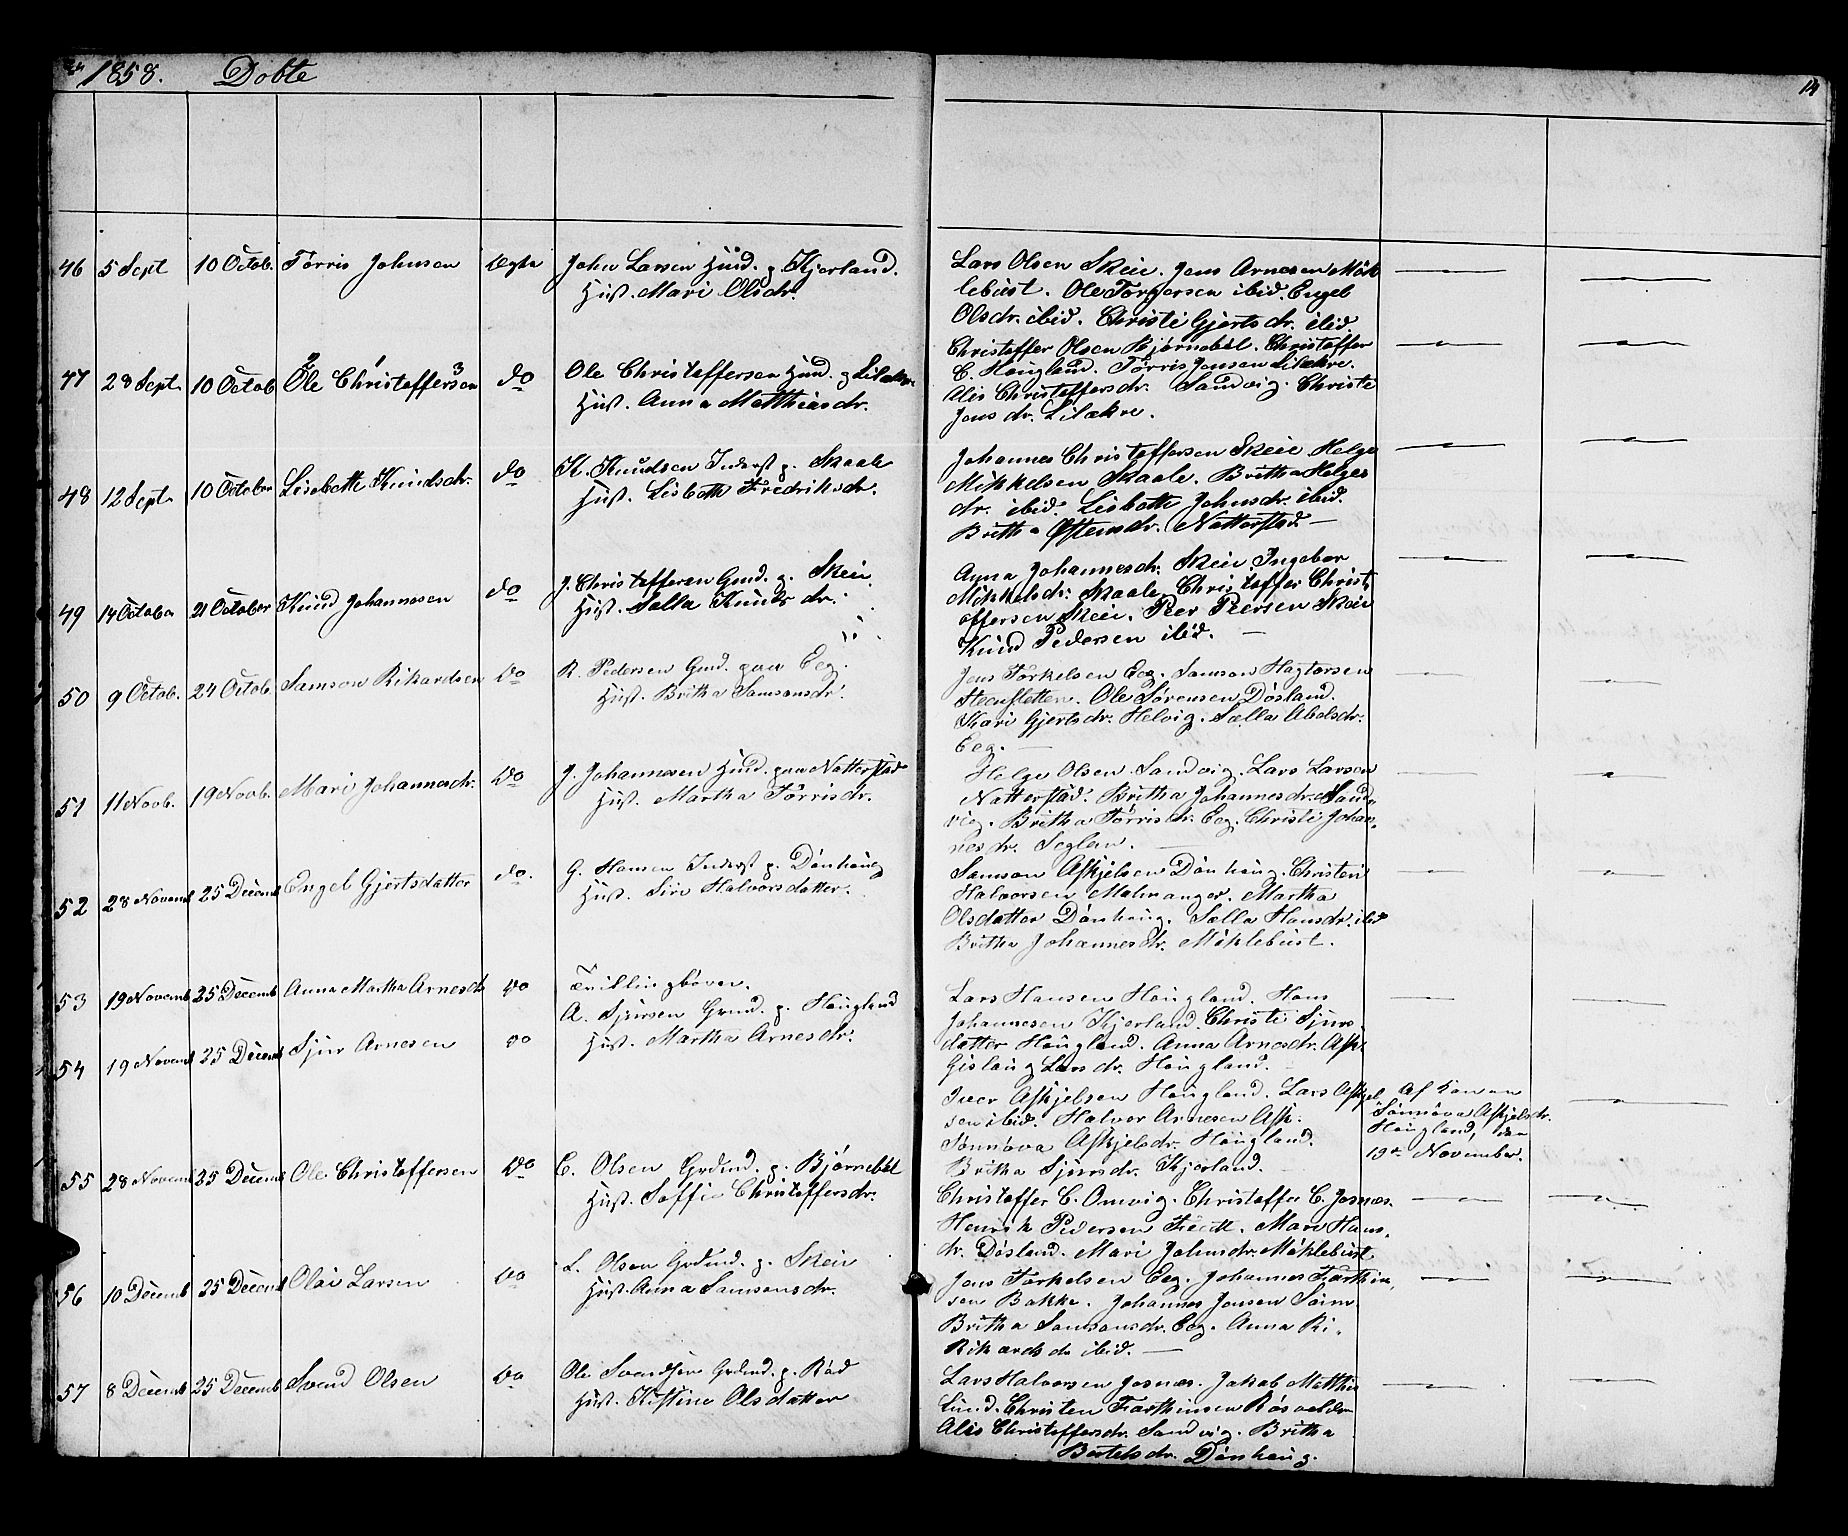 1858. Döbte
14
46 5 Sept 10 Octob. Tørris Johnsen Ægte John Larsen Huusd. p. Kjerland.
Hust. Mari Olsdr.
Lars Olsen Skeie. Jens Arnesen Mök
lebust. Ole Torgersen ibid. Engel
Olsdr. ibid. Christi Gjertsdr. ibid.
47 28 Sept. 10 Octob Ole Christoffersen do Ole Christoffersen Huusd. p Lilækre
Hust. Anna Matthiasdr.
Christoffer Olsen Bjørnebøl. Christoffer
C. Hougland. Tørris Jensen Lilækre.
Alis Christoffersdr. Sandvig. Christi
Jensdr. Lilækre.
48 12 Sept. 10 October Lisebeth Knudsdr. do K. Knudsen Inderst p. Skaale
Hust. Lisbeth Fredriksdr.
Johannes Christoffersen Skeie Helge
Mikkelsen Skaale. Britha Helges
dr. ibid. Lisbeth Johnsdr. ibid.
Britha Østensdr. Natterstad. —
49 14 October 21 October Knud Johannesen do J. Christoffersen Grud. p. Skeie
Hust. Salla Knutsdr.
Anna Johannesdr. Skeie Ingebor
Mikkelsdr. Skaale Christoffer Christ
offersen Skeie. Peer Peersen Skeie
Knud Pedersen ibid. —
50 9 Octob. 24 Octob. Samson Rikardsen Do R. Pedersen Grud. paa Eeg.
Hust. Britha Samsonsdr.
Jens Torkelsen Eeg. Samson Hagtorsen
Steensletten. Ole Sörensen Dösland.
Kari Gjertsdr. Helvig. Sælla Abelsdr.
Eeg. —
51 11 Novb. 19 Novb. Mari Johannesdr. Do J. Johannesen Huusd. paa Natterstad
Hust. Martha Tørrisdr.
Helge Olsen Sandvig. Lars Larsen
Natterstad. Britha Johannesdr. Sand
vig. Britha Tørrisdr. Eeg. Christi Johan-
nesdr. Seglem. —
52 28 Novemb 25 Decemb Engel Gjertsdatter do. G. Hansen Inderst p. Dönhaug
Hust. Siri Halvorsdatter.
Samson Askjelsen Dönhaug. Christen
Halvorsen Malmanger. Martha
Olsdatter Dönhaug. Sælla Hansdr. ibid
Britha Johannesdr. Möklebust.
53 19 Novemb 25 Decemb Anna Martha Arnesdr Do Tvillingbören.
A. Sjursen Grud. p. Hougland
Hust. Martha Arnesdr.
Lars Hansen Hougland. Hans
Johannesen Kjerland. Christi Sjurs
datter Hougland. Anna Arnesdr. Ask.
Gislaug Larsdr. Hougland.
54 19 Novemb 25 Decemb Sjur Arnesen Do
Iver Askjelsen Hougland. Lars Askjel
sen ibid. Halvor Arnesen Ask.
Sönnöva Askjelsdr. Hougland.
Britha Sjursdr. Kjerland.
Af Konen
Sönnöva Askjelsdr.
Hougland, den
19de November.
55 28 Novemb 25 Decemb Ole Christoffersen Do C. Olsen Grdmd. p. Bjørnebøl
Hust. Soffie Christoffersdr.
Christoffer C. Omvig. Christoffer C. Josnæs.
Henrik Pedersen Tveitt. Mari Hans
dr. Dösland. Mari Johnsdr. Möklebust
56 10 Decemb 25 Decemb Olai Larsen Do L. Olsen Grdmd. p. Skeie
Hust. Anna Samsonsdr.
Jens Torkelsen Eeg. Johannes Farthin
sen Bakke. Johannes Jensen Söim.
Britha Samsonsdr. Eeg. Anna Ri-
Rikardsdr ibid. —
57 8 Decemb 25 Decemb Svend Olsen Do Ole Svendsen Grdmd. p. Röd
Hust. Kistine Olsdatter
Lars Halvorsen Josnæs. Jakob Matthis
Lund. Christen Farthinsen Rösvalder
Alis Christoffersdr. Sandvig. Britha
Bertelsdr. Dönhaug.